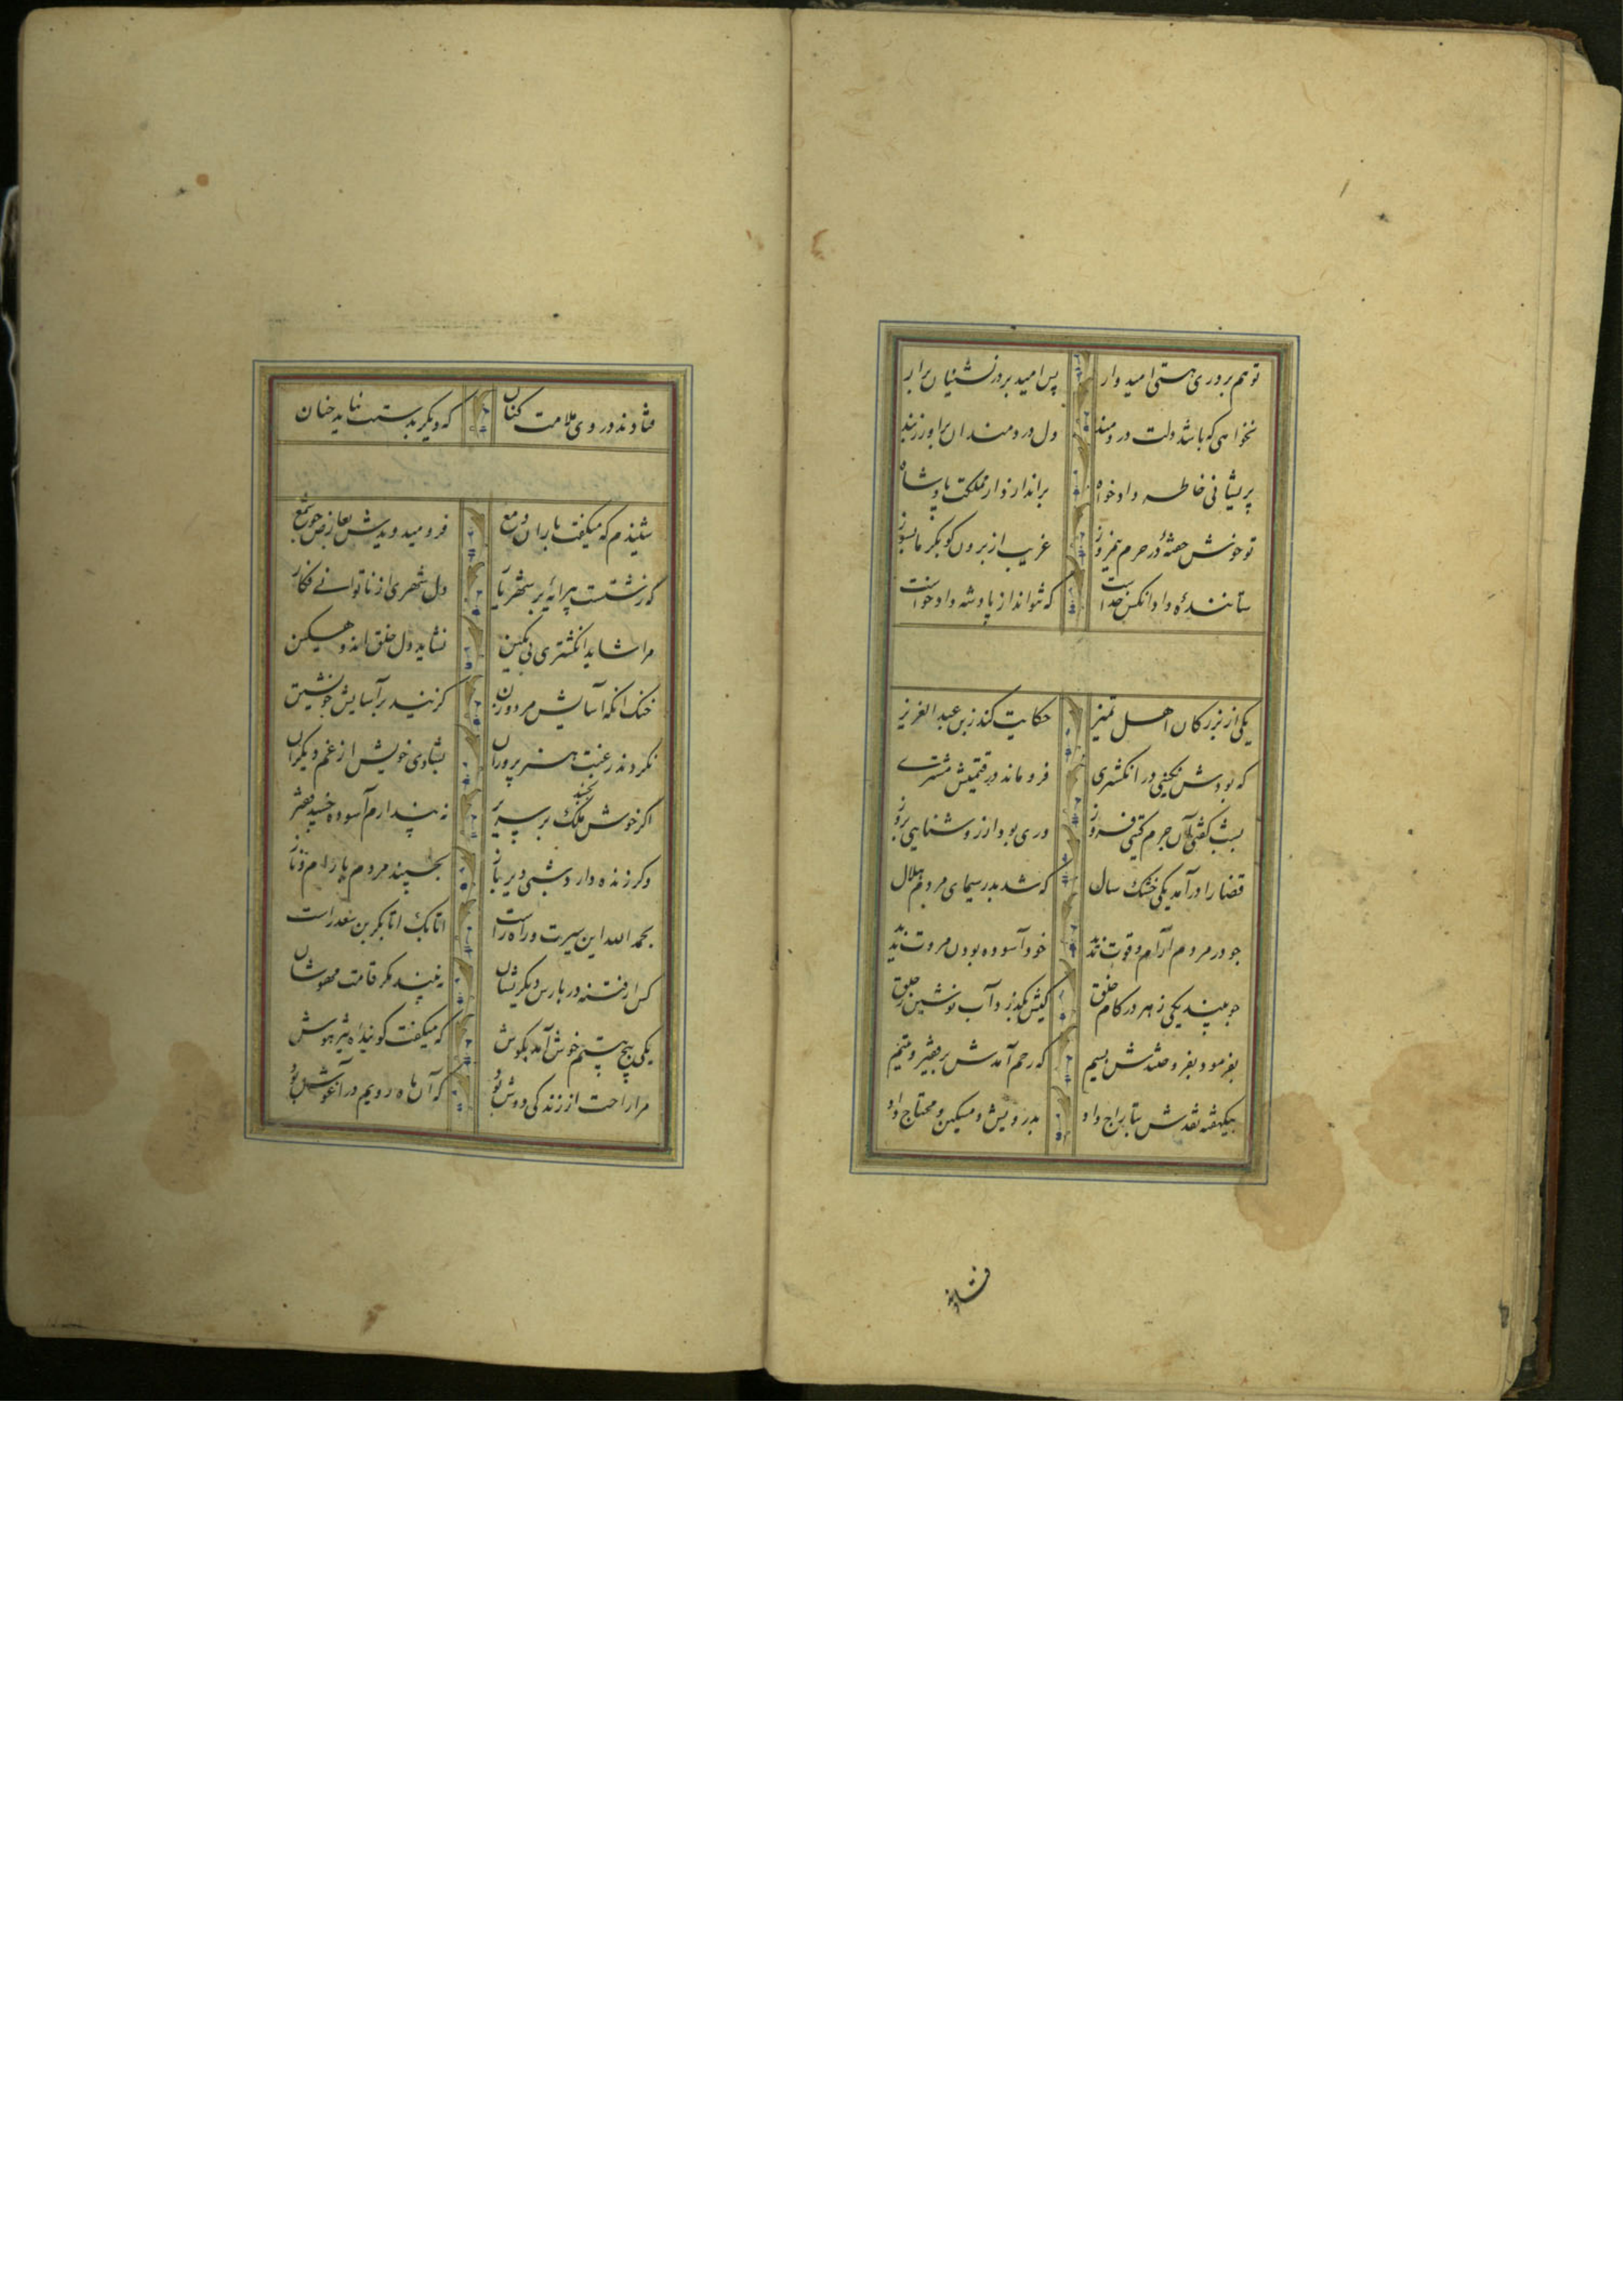 تو هم بر دری هستی امیدوار پس امید بر در نشینان برار
نخواهی که باشد دلت دردمند دل دردمندان برآور ز بند
پریشانی خاطر دادخواه براندازد از مملکت پادشاه
تو خوش خفتهٔ در حرم نیمروز غریب از برون کو بکرما بسوز
ستانندهٔ داد آنکس خداست که نتواند از پادشه دادخواست
یکی از بزرکان اهل تمیز حکایت کند ز بن عبدالعزیز
که بودش نکینی در انکشتری فرو مانده در قیمتش مشتری
بشب کفتی آن جرم کیتی فروز دری بود از روشنایی روز
قضا را درآمد یکی خشک سال که شد بدر سیمای مردم هلال
جو در مردم آرام و قوت ندید خود آسوده بودن مروت ندید
جو بیند یکی زهر در کام خلق کیش بکذرد آب نوشین ز حلق
بفرمود و بفروختندش بسیم که رحم آمدش بر فقیر و یتیم
بیکهفته نقدش بتاراج داد بدرویش و مسکین و محتاج داد
فتادند
فتادند در وی ملامت کنان که دیکر بدستت نیاید جنان
شنیدم که میکفت باران دمع فرو میدویدش بعارض جو شمع
که زشتست پیرایه بر شهریار دل شهری از ناتوانی فکار
مرا شاید انکشتری بی نکین نشاید دل خلق اندوهکین
خنک انکه آسایش مرد و زن کزیند بر آسایش خویشتن
نکردند رغبت هنرپروران بشادی خویش از غم دیکران
اکر خوش بخسبد ملک بر سریر نه پندارم آسوده خسبد فقیر
وکر زنده دارد شبی دیرباز بخسبند مردم بارام و ناز
بحمد الله این سیرت و راه راست اتابک ابابکر بن سعد راست
کس از فتنه در بارس دیکر نشان نه بیند مکر قامت مهوشان
یکی پنج بیتم خوش آمد بکوش که میکفت کوینده‌ٔ
مرا راحت از زندکی دوش بود که آن ماه رویم در آغوش بود